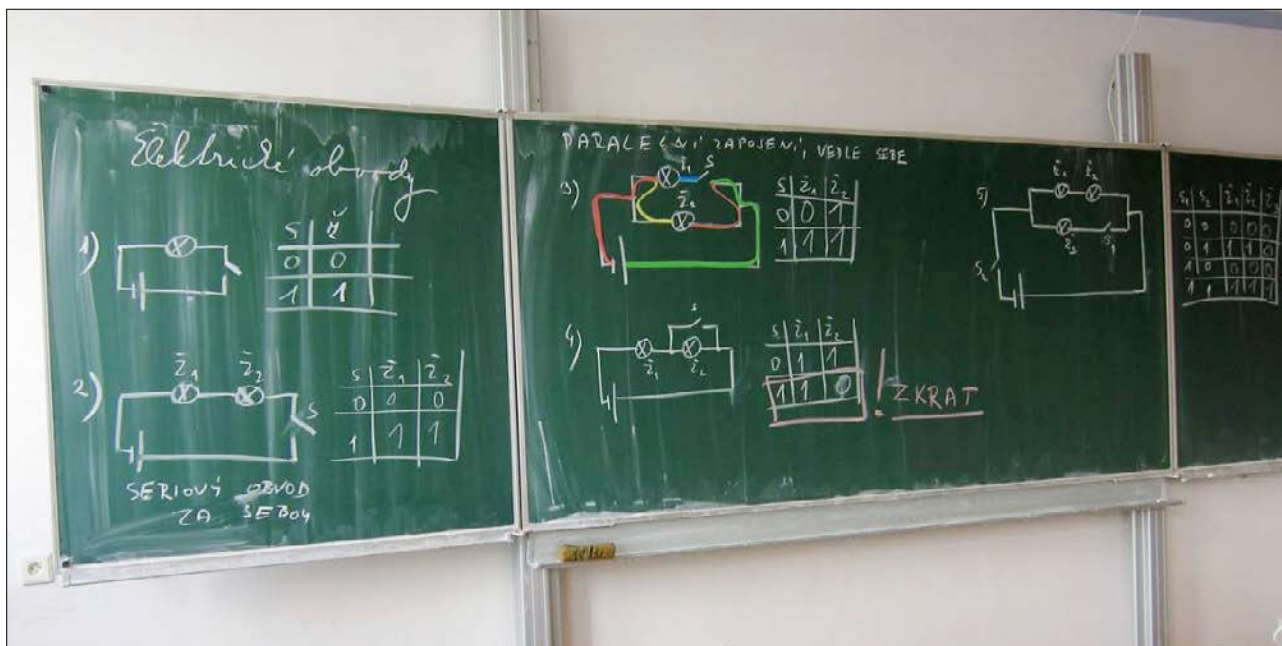 Elektrické obvody
1)
S Ž
0 0
1 1
2)
Ž1 Ž2
S
S Ž1 Ž2
0 0 0
1 1 1
SERIOVÝ OBVOD
ZA SEBOU
PARALELNÍ ZAPOJENÍ, VEDLE SEBE
3)
Ž1 S
Ž2
S Ž1 Ž2
0 0 1
1 1 1
4)
S
Ž1 Ž2
S Ž1 Ž2
0 1 1
1 1 0
! ZKRAT
5)
Ž1 Ž2
Ž3 S1
S2
S1 S2 Ž1 Ž2 Ž
0 0 0 0 0
0 1 1 1 0
1 0 0 0 0
1 1 1 1 1